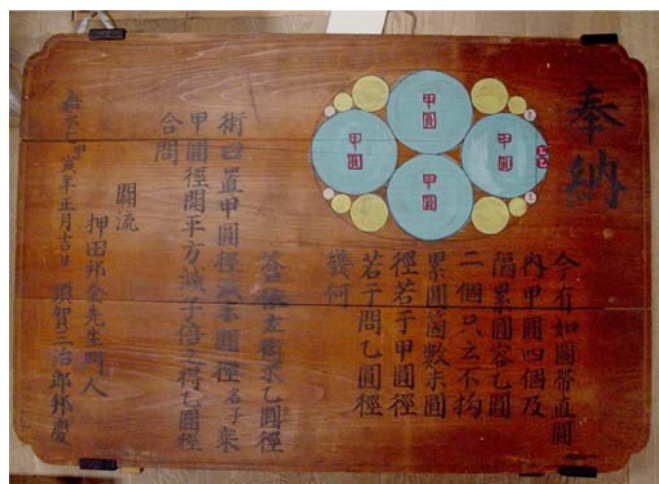 奉納
甲圓
甲圓
甲圓
甲圓
今有如圖帶直圓
内甲圓四個及
隔累圓容乙圓
二個只云不拘
累圓箇數末圓
徑若干甲圓徑
若干問乙圓徑
幾何
答曰依左術求乙圓徑
術曰置甲圓徑圓徑名子乗
甲圓徑開平方減子倍之得乙圓徑
合問
關流
押田邦全先生門人
嘉永七甲寅年正月吉日 須賀三治郎邦慶